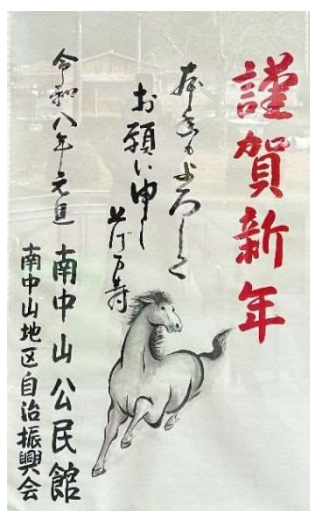 謹賀新年
本年もよろしく
お願い申し
上げ万寿
令和八年元旦
南中山公民館
南中山地区自治振興会